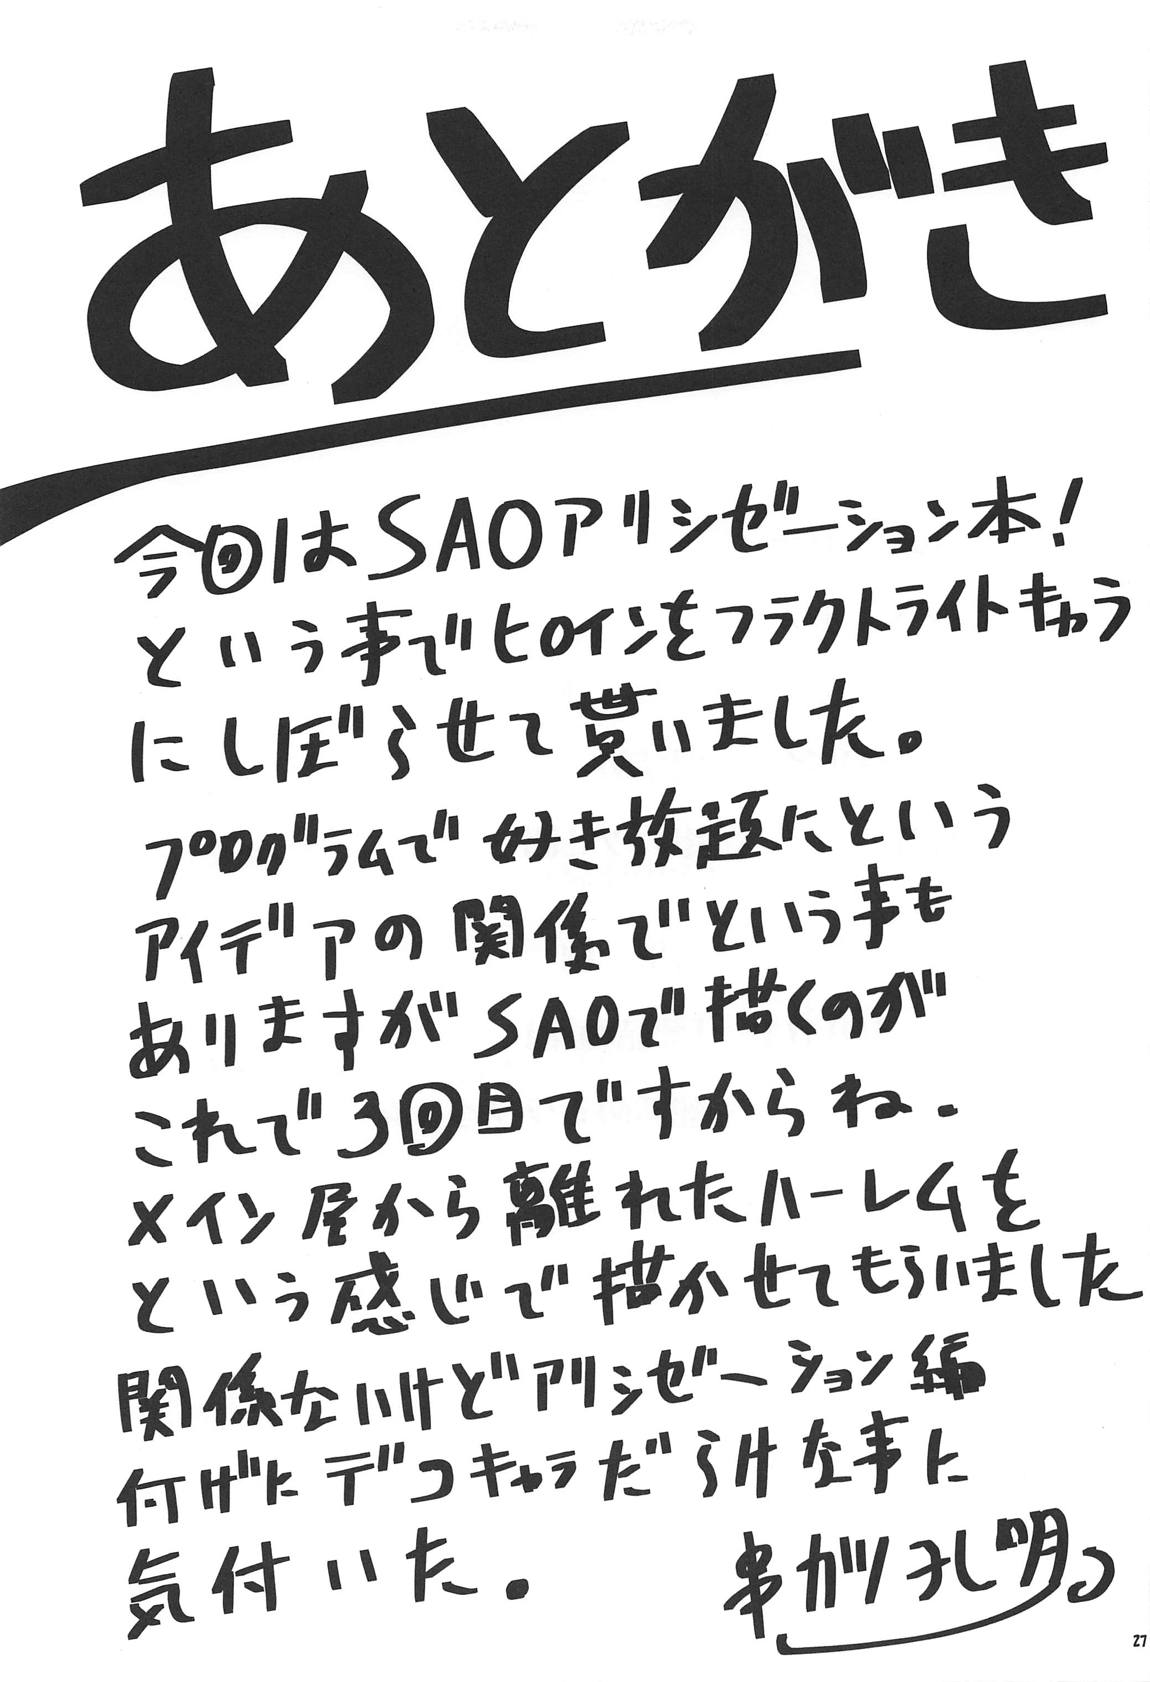 あとがき
今回はSAOアリシゼーション本!
という事でヒロインをフラクトライトキャラ
にしぼらせて貰いました。
プログラムで好き放題にという
アイデアの関係でという事も
ありますがSAOで描くのが
これで3回目ですからね.
メイン屋から離れたハーレムを
という感じで描かせてもらいました
関係ないけどアリシゼーション編
付げにデコキャラだらけな事に
気付いた.
串カツ孔明
27